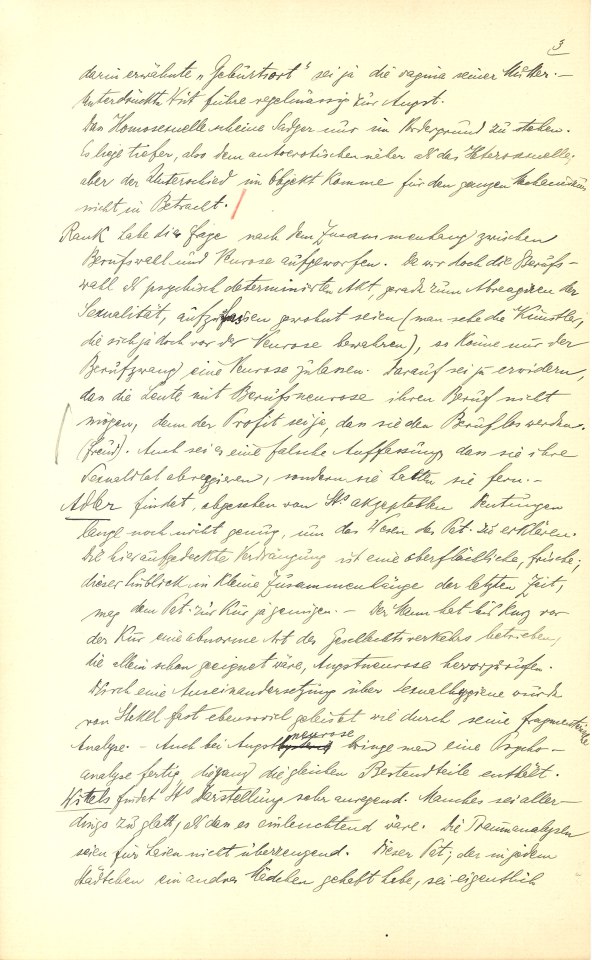 3
darin erwähnte „Geburtsort" sei ja die vagina seiner Mutter. –
Unterdrückte Wut führe regelmässig zur Angst.
Das Homosexuelle scheine Sadger nur im Vordergrund zu stehen.
Es liege tiefer, also dem autoerotischen näher als das Heterosexuelle;
aber der Unterschied im Objekt komme für den ganzen Mechanismus
nicht in Betracht.
Rank habe die Frage nach dem Zusammenhang zwischen
Berufswahl und Neurose aufgeworfen. Da wir doch die Berufs-
wahl als psychisch determinirten Akt, gerade zum Abreagiren der
Sexualität, aufzufassen gewohnt seien (man sehe die Künstler,
die sich ja doch vor der Neurose bewahren), so könne nur der
Berufzwang eine Neurose zulassen. Darauf sei zu erwidern,
dass die Leute mit Berufsneurose ihren Beruf nicht
mögen, denn der Profit sei ja, dass sie den Beruf los werden.
(Freud). Auch sei es eine falsche Auffassung, dass sie ihre
Sexualität abreagieren, sondern sie halten sie fern. –
Adler findet, abgesehen von St's akzeptablen Deutungen
lange noch nicht genug, um das Wesen des Pat. zu erklären.
Die hier aufgedeckte Verdrängung ist eine oberflächliche, frische;
dieser Einblick in kleine Zusammenhänge der letzten Zeit,
mag dem Pat. zur Kur ja genügen. – Der Mann hat bis kurz vor
der Kur eine abnorme Art des Geschlechtsverkehrs betrieben,
die allein schon geeignet wäre, Angstneurose hervorzurufen.
Durch eine Auseinandersetzung über Sexualhygiene würde
von Stekel fast ebensoviel geleistet wie durch seine fragmentarische
Analyse. – Auch bei Angstneurose bringe man eine Psycho-
analyse fertig, die ganz die gleichen Bestandteile enthält.
Wittels findet St's Darstellung sehr anregend. Manches sei aller-
dings zu glatt, als dass es einleuchtend wäre. Die Traumanalysen
seien für Laien nicht überzeugend. Dieser Pat., der in jedem
Städtchen ein andres Mädchen gehabt habe, sei eigentlich